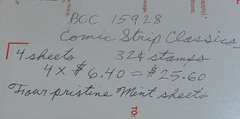 BCC 15928
Comic Strip Classics
4 sheets 32¢ stamps
4 x $6.40 = $25.60
Four pristine Mint sheets